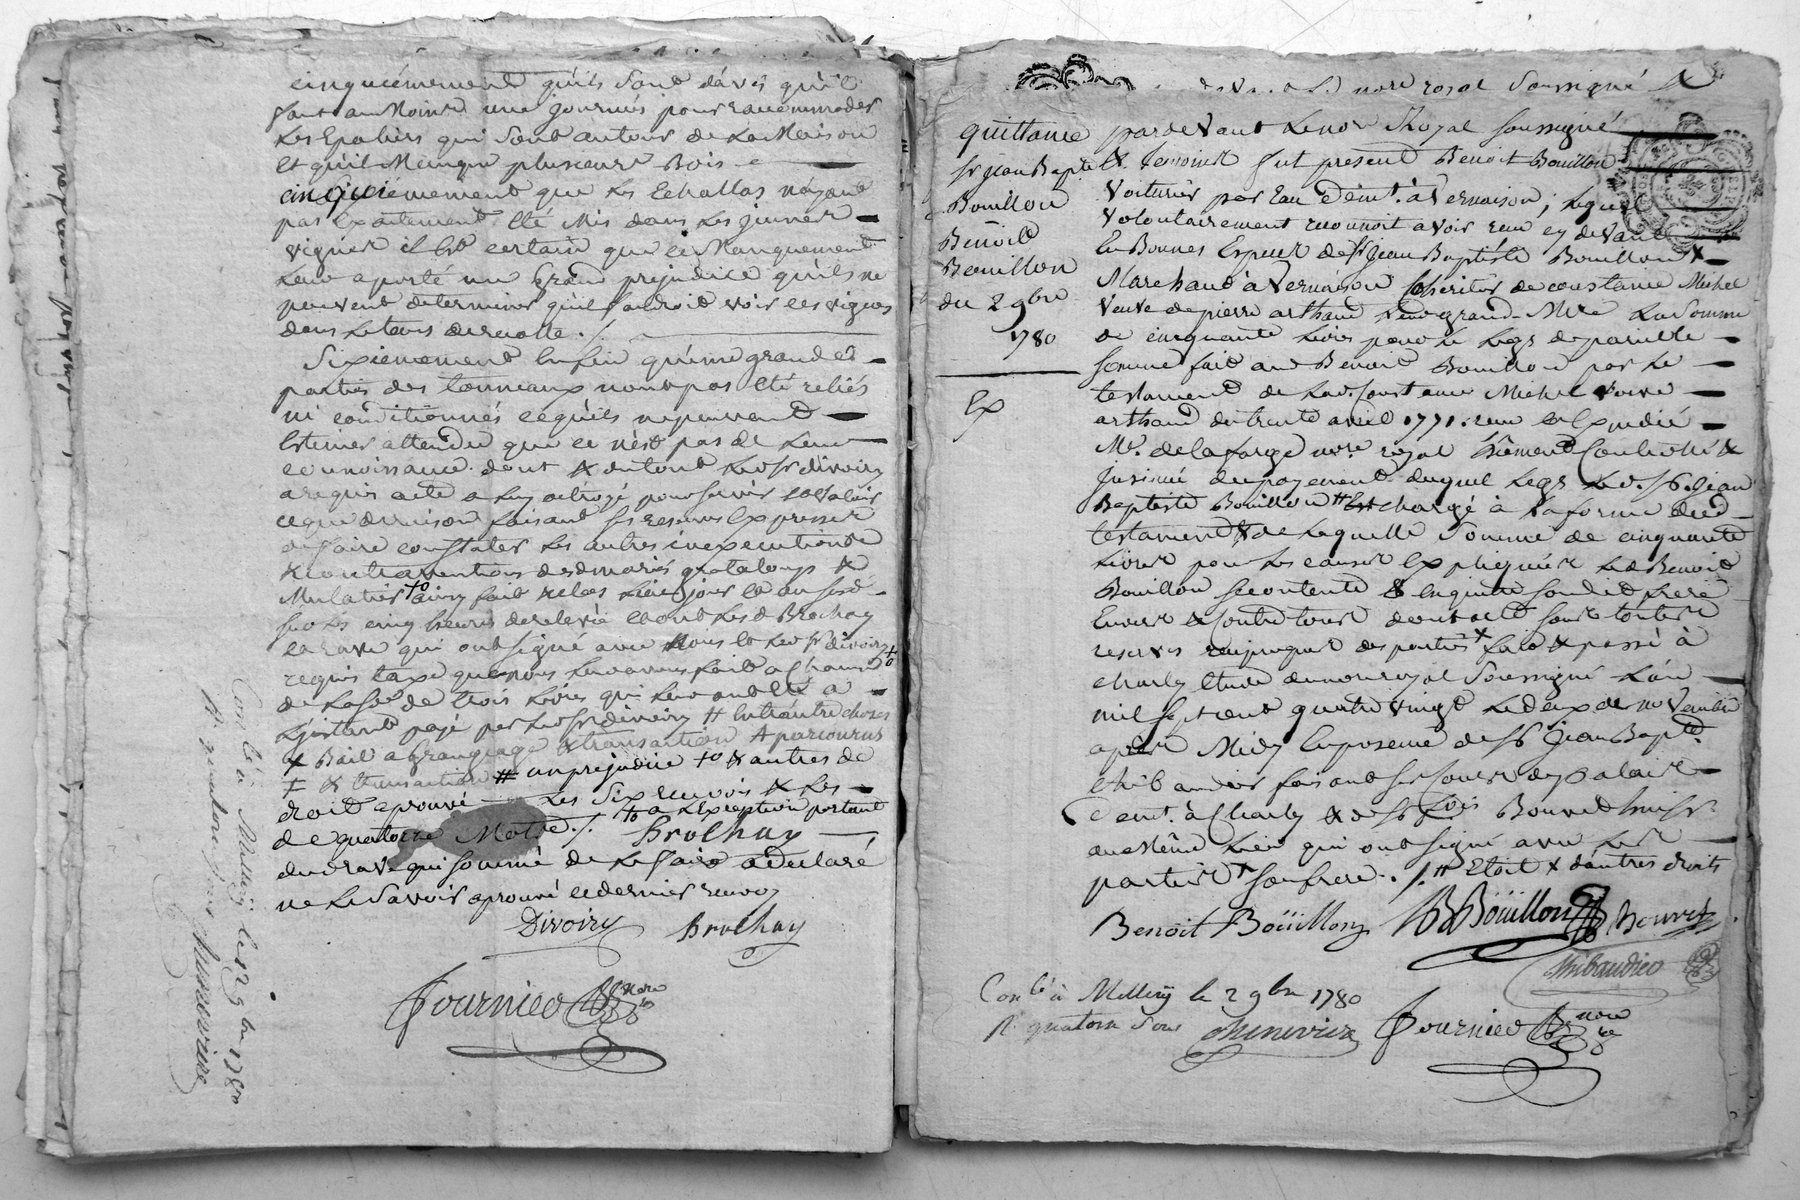 cinquiemement qu'ils sont d'avis qu'il
faut au Moins une journée pour racommoder
Les Epaliers qui sont autour de La Maison
Et qu'il Manque plusieurs Bois
cinquiemement que Les Echallas n'ayant
pas Exactement Eté Mis dans Les jeunes
vignes il Est certain que ce Manquement
Leur a porté un Grand prejudice qu'ils ne
peuvent determiner qu'il faudroit voir les vignes
dans Le tems de recolte ./.
Sixiemement Enfin qu'une grande
partie des tonneaux n'ont pas Eté reliés
ni conditionnés ce qu'ils ne peuvent
Estimer attendu que ce n'est pas de Leur
connoissance dont & du tout Led. Sr divoiry
a requis acte a Luy octroyé pour servir & valoir
ce que de raison faisant ses reserves Expresses
de faire constater Les autres inexecutions
& contraventions desd mariés grataloup &
Mulatier fait aud Lieu jour
sur Les cinq heures de relevé
qui ont signé avec Nous & Led Sr divoiry
requis taxe que nous Leur avons fait a chacun
de La Se de trois Livres qui Leur ont Eté a
L'jnstant payé par Led Sr divoiry # Entr'autre choses
+ Bail a Grangeage & transaction + parcourus
& transaction # unprejudice to & autres de
droit aprouvé Les Six renvois & Les
de quatorze Mots ./. to a L'Exception portant
Brochay
du d rave qui sommé de Le faire a declaré
ne Le Savoir aprouvé ce dernier renvoy
Divoiry Brochay
Fournier Nore
Conlé à Millery le 2 9bre 1780
R. quatorze sous Chenevière
nore royal Soussigné
quittance
Sr Jean Bapte
Bouillon
a
Benoit
Bouillon
du 2 9bre
1780
Ex
pardevant Le nore Royal soussigné
& temoins fut present Benoit Bouillon
Voiturier par Eau demt. à Vernaison, Lequel
volontairement reconnoit avoir reçu cy devant
En Bonnes Especes de Sr Jean Baptiste Bouillon
Marchand à Vernaison heritier de constance Michel
veuve de pierre arthaud Leur grand-Mère La Somme
de cinquante Livres pour Le Legs de pareille
somme fait aud Benoit Bouillon par Le
testament de Lad. Constance Michel veuve
arthaud du trente avril 1771. reçu & Expedié
Me. de Lafarge nore. royal Duement Controllé &
jnsinué du payement duquel Legs Led. Sr. Jean
Baptiste Bouillon # chargé à La forme dud
testament & de Laquelle Somme de cinquante
Livres pour Les causes Expliquées Led Benoit
Bouillon se contente & En quitte sond. frere
Envers & Contre tous dont acte sous toutes
reserves reciproques des parties x fait & passé à
charly Etude du nore royal Soussigné L'an
mil sept cent quatre vingt Le deux de novembre
après Midy En presence de Sr Jean Bapte.
thibaudier faisant ses Cours du palais
demt. à Charly & de Sr Bouvret
au Même Lieu qui ont signé avec Les
parties x son frere ./. # Etoit x d'autres droits
Benoit Boüillon JB Boüillon Bouvret
thibaudier
Conlé à Millery le 2 9bre 1780
R. quatorze sous Chenevière Fournier nore